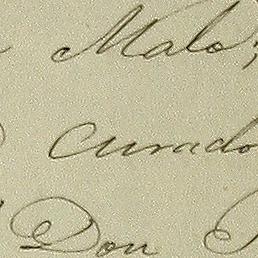 Malo;
Curado
Don